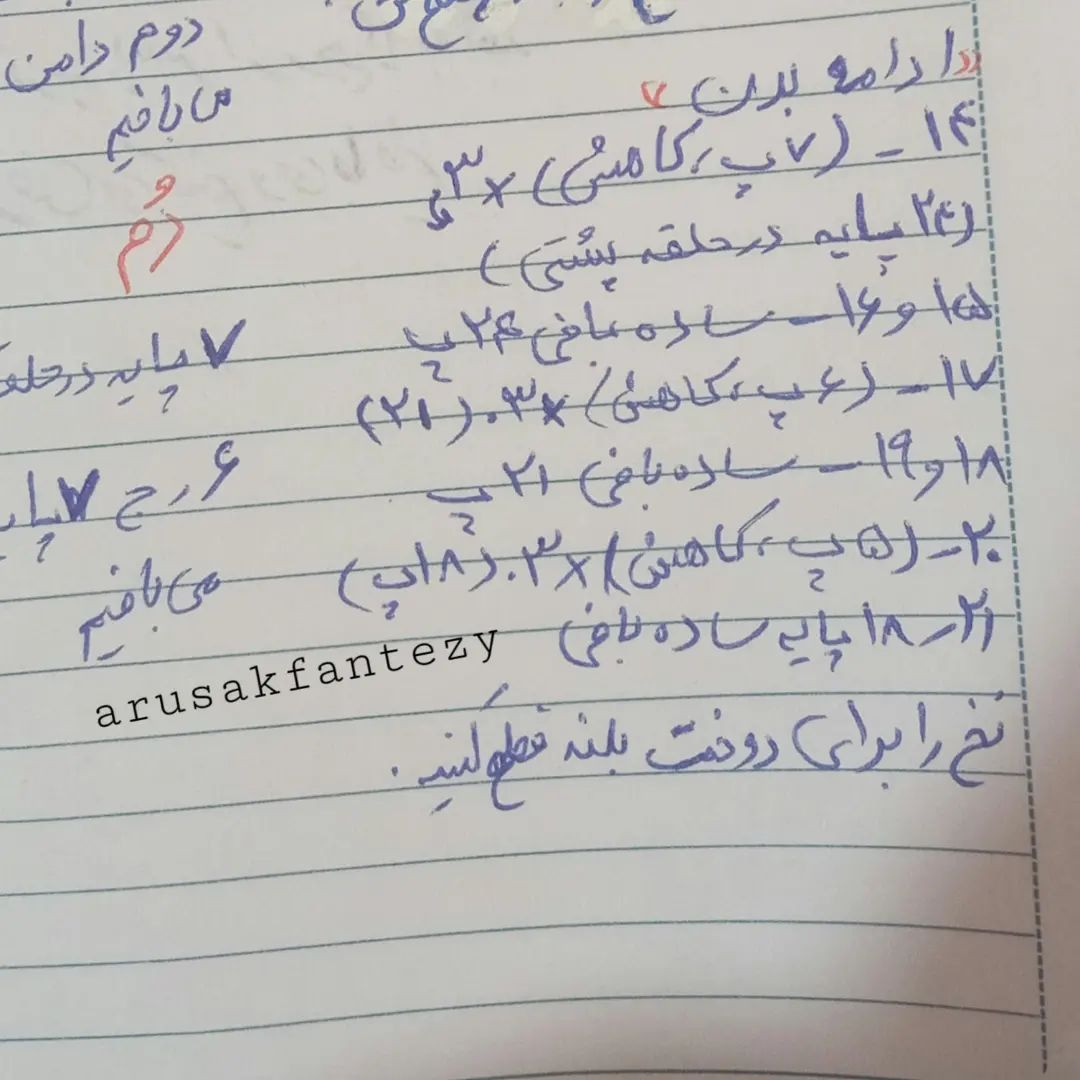 ادامه بدن
۱۴ – (۷پ، کاهش) ×۳
(۲۴ پایه در حلقه پشتی)
۱۵ و ۱۶ – ساده بافی ۲۴ پ
۱۷ – (۶ پ، کاهش) ×۳. (۲۱)
۱۸ و ۱۹ – ساده بافی ۲۱ پ
۲۰ – (۵ پ، کاهش) ×۳. (۱۸پ)
۲۱ – ۱۸ پایه ساده بافی
نخ را برای دوخت بلند قطع کنید.
دوم دامن
می بافیم
دُم
۷ پایه در
۶ رج ۷
می بافیم
arusakfantezy